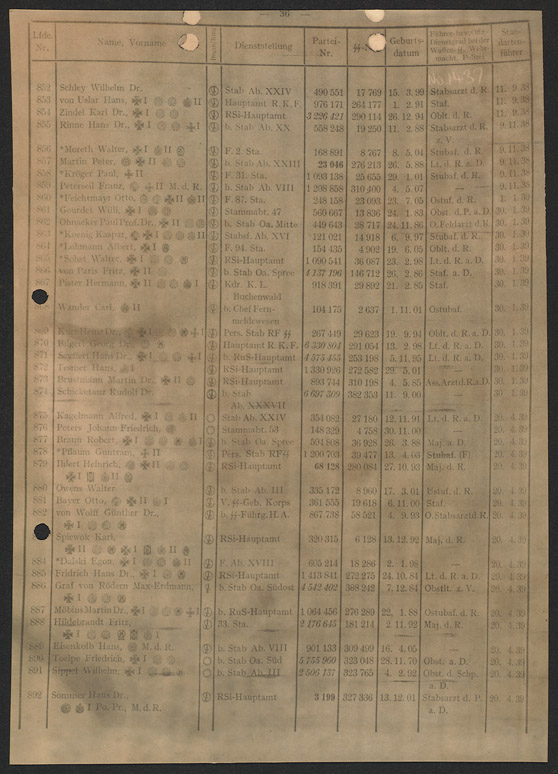 — 36 —
Lfde. Nr. Name, Vorname Dienststellung Partei-Nr. Geburts-datum
No. 1437
852 Schley Wilhelm Dr. Stab Ab. XXIV 490 551 17 769 15. 3.99 Stabsarzt d. R. 11. 9.38
853 von Uslar Hans, I II Hauptamt R. K. F. 976 171 264 177 4. 2.91 Staf. 9.11.38
854 Zindel Karl Dr., I RSi-Hauptamt 3 226 421 290 114 26.12.94 Oblt. d. R. 9.11.38
855 Rinne Hans Dr., I I b. Stab Ab. XX 558 248 19 250 11. 2.88 Stabsarzt d. R. 9.11.38
z. V.
856 *Mereth Walter, I II F. 2. Sta. 168 891 8 767 8. 5.04 Stubaf. d. R. 9.11.38
857 Martin Peter, II b. Stab Ab. XXIII 23 046 276 213 26. 5.88 Lt. d. R. a. D. 9.11.38
858 *Kröger Paul, II F. 31. Sta. 1 093 138 25 655 29. 1.01 Stubaf. d. R. 9.11.38
859 Petersell Franz, II M. d. R. b. Stab Ab. VIII 1 208 858 310 400 4. 5.07 — 9.11.38
860 *Feichtmayr Otto, II F. 87. Sta. 248 158 23 093 7. 05 Ostuf. d. R. 1.39
861 Gourdet Willi, I Stammabt. 47 560 667 13 836 24. 1.83 Obst. d. P. a. D. 30. 1.39
862 Ohnacker Paul Prof. Dr., II b. Stab Oa. Mitte 449 643 28 717 24.11.86 O.Feldarzt d.R. 30. 1.39
863 *Koenig Kaspar, II Stabsf. Ab. XVI 122 021 14 918 6. 9.97 Stubaf. d. R. 30. 1.39
864 *Lohmann Albert, I F. 94. Sta. 154 435 4 902 19. 6.05 Oblt. d. R. 30. 1.39
865 *Sohst Walter, I RSi-Hauptamt 1 090 541 36 087 23. 2.98 Lt. d. R. a. D. 30. 1.39
866 von Paris Fritz, II b. Stab Oa. Spree 4 137 196 146 712 26. 2.86 Staf. a. D. 30. 1.39
867 Pister Hermann, I Kdr. K. L. 918 391 29 892 21. 2.85 Staf. 30. 1.39
Buchenwald
Wander Carl, II b. Chef Fern- 104 175 2 637 1.11.01 Ostubaf. 30. 1.39
meldewesen
869 Dr., I Pers. Stab RF SS 267 449 29 623 19. 9.94 Oblt. d. R. a. D. 30. 1.39
870 Georg Dr. Hauptamt R. K. F. 6 330 804 291 054 13. 2.98 Lt. d. R. a. D. 30. 1.39
871 Hans Dr., I b. RuS-Hauptamt 4 575 455 253 198 5.11.95 Lt. d. R. a. D. 30. 1.39
872 Tesmer Hans, I RSi-Hauptamt 1 330 926 272 582 29. 5.01 — 30. 1.39
873 Martin Dr., II RSi-Hauptamt 893 744 310 198 4. 5.85 30. 1.39
874 Schicketanz Rudolf Dr. b. Stab 6 697 309 382 353 11. 9.00 — 30. 1.39
Ab. XXXVII
875 Kagelmann Alfred, I Stab Ab. XXIV 354 082 27 180 12.11.91 Lt. d. R. a. D. 20. 4.39
876 Peters Johann Friedrich, Stammabt. 53 148 329 4 758 30.11.00 — 20. 4.39
877 Braun Robert, I b. Stab Oa Spree 504 808 36 928 26. 3.88 Maj. a. D. 20. 4.39
878 *Pflaum Guntram, II Pers. Stab RF SS 1 200 703 39 477 13. 4.03 Stubaf. (F) 20. 4.39
879 Ihlert Heinrich, II RSi-Hauptamt 68 128 280 084 27.10.93 Maj. d. R. 20. 4.39
I II
880 Owens Walter b. Stab Ab. III 335 172 8 960 17. 3.01 Ustuf. d. R. 20. 4.39
881 Bayer Otto, II I V. SS-Geb. Korps 361 555 19 618 6.11.00 Staf. 20. 4.39
882 von Wolff Günther Dr., b. SS-Führg. H.A. 867 738 58 521 4. 9.93 O.Stabsarzt d.R. 20. 4.39
I
Spiewok Karl, RSi-Hauptamt 320 315 6 128 13.12.92 Maj. d. R. 20. 4.39
II I II
884 *Dalski Egon, I II F. Ab. XVIII 605 214 18 286 2. 1.98 — 20. 4.39
885 Fridrich Hans Dr., I RSi-Hauptamt 1 413 841 272 275 24.10.84 Lt. d. R. a. D. 20. 4.39
886 Graf von Rödern Max-Erdmann, b. Stab Oa. Südost 4 542 402 308 242 7.12.84 Obstlt. a. V. 20. 4.39
I
887 Möbius Martin Dr., I I b. RuS-Hauptamt 1 064 456 276 289 22. 1.88 Ostubaf. d. R. 20. 4.39
888 Hildebrandt Fritz, 33. Sta. 2 176 645 181 214 2.11.92 Maj. d. R. 20. 4.39
I
889 Elsenkolb Hans, M. d. R. b. Stab Ab. VIII 901 133 309 499 16. 4.05 — 20. 4.39
890 Friedrich, I b. Stab Oa. Süd 5 755 960 323 048 28.11.70 Obst. a. D. 20. 4.39
891 Sippel Wilhelm, I b. Stab Ab. III 2 506 137 323 765 4. 2.92 Obst. d. Schp. 20. 4.39
a. D.
892 Sommer Hans Dr., RSi-Hauptamt 3 199 327 336 13.12.01 Stabsarzt d. P. 20. 4.39
I Po. Pr., M. d. R. a. D.